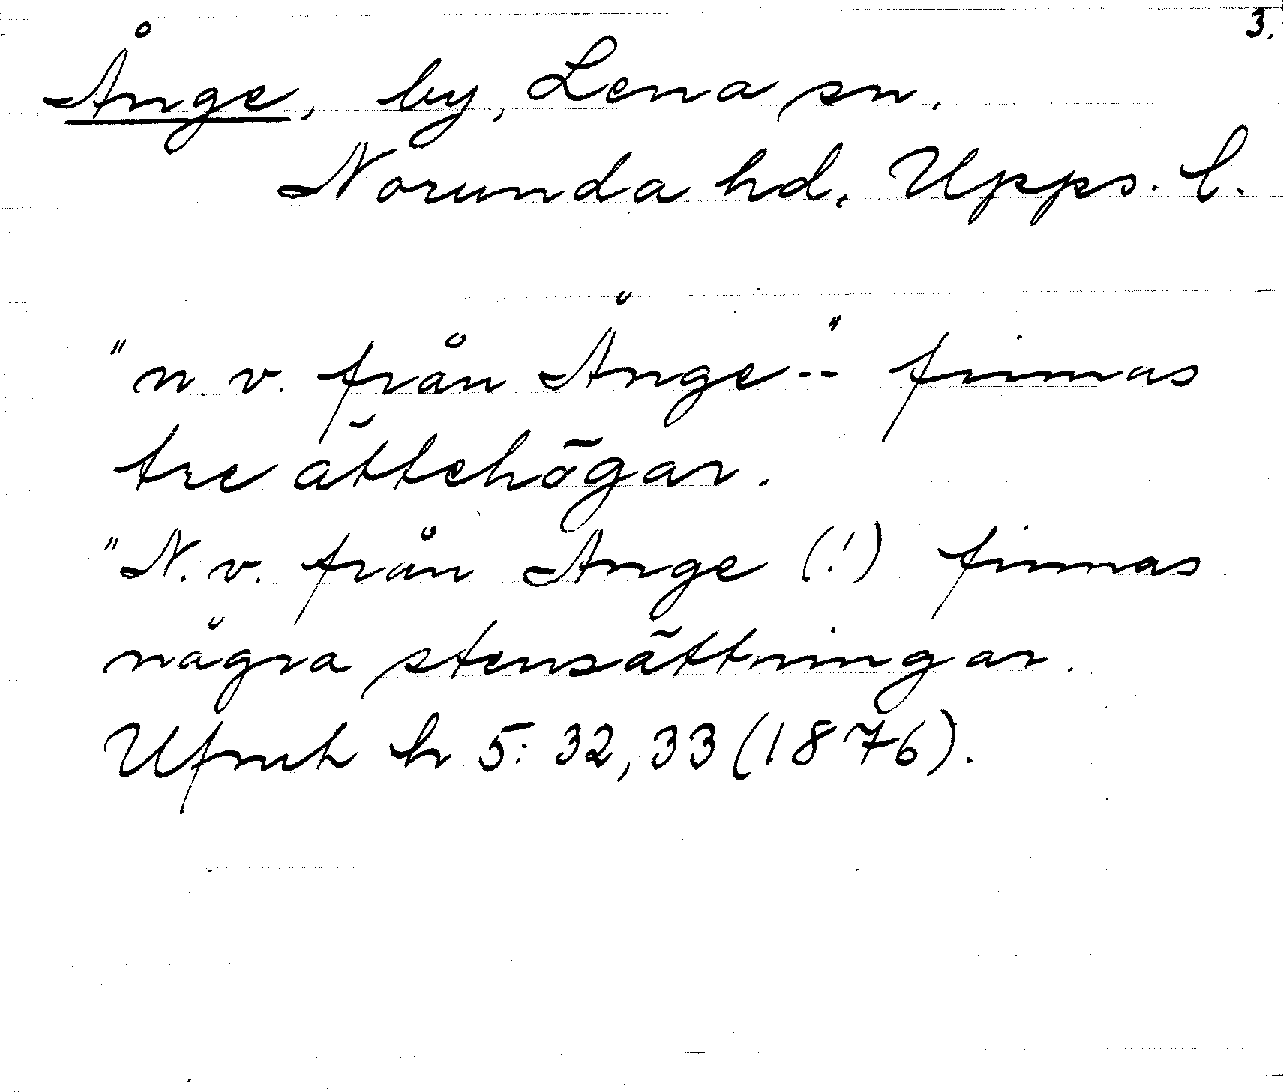 3.
Ånge, by, Lena sn.
Norunda hd. Upps. l.
"n v. från Ånge--" finnas
tre ättehögar.
"N. v. från Ange (!) finnas
några stensättningar.
Ufmh h 5: 32, 33 (1876).